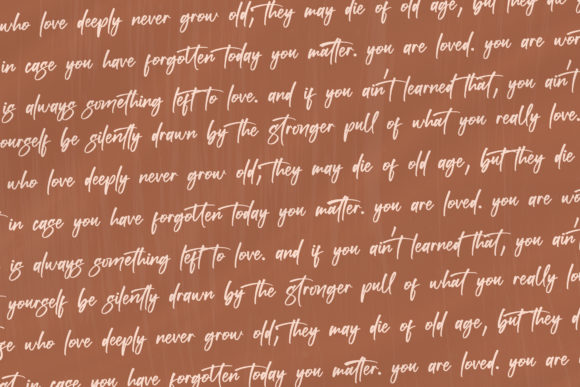 who love deeply never grow old; they may die of old age, but they die
in case you have forgotten today you matter. you are loved. you are wor
is always something left to love. and if you ain't learned that, you ain't
ourself be silently drawn by the stronger pull of what you really love.
who love deeply never grow old; they may die of old age, but they die
t in case you have forgotten today you matter. you are loved. you are wo
is always something left to love. and if you ain't learned that, you ain'
yourself be silently drawn by the stronger pull of what you really lo
se who love deeply never grow old; they may die of old age, but they d
at in case you have forgotten today you matter. you are loved. you are